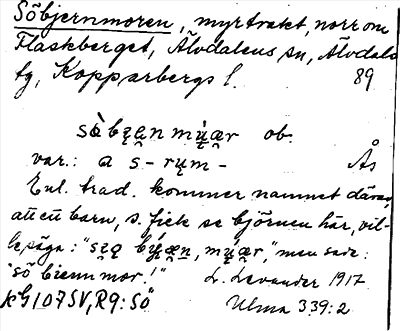 Söbjernmoren, myrtrakt, norr om
Flaskberget, Älvdalens sn, Älvdals
tg, Kopparbergs l. 89
ob.
var.: a s-rųm- Ås
Enl. trad. kommer namnet därav,
att ett barn, s. fick se björnen här, vil-
le säga: men sade:
"sö bienn mor!" L. Levander 1917
Ulma 339:2